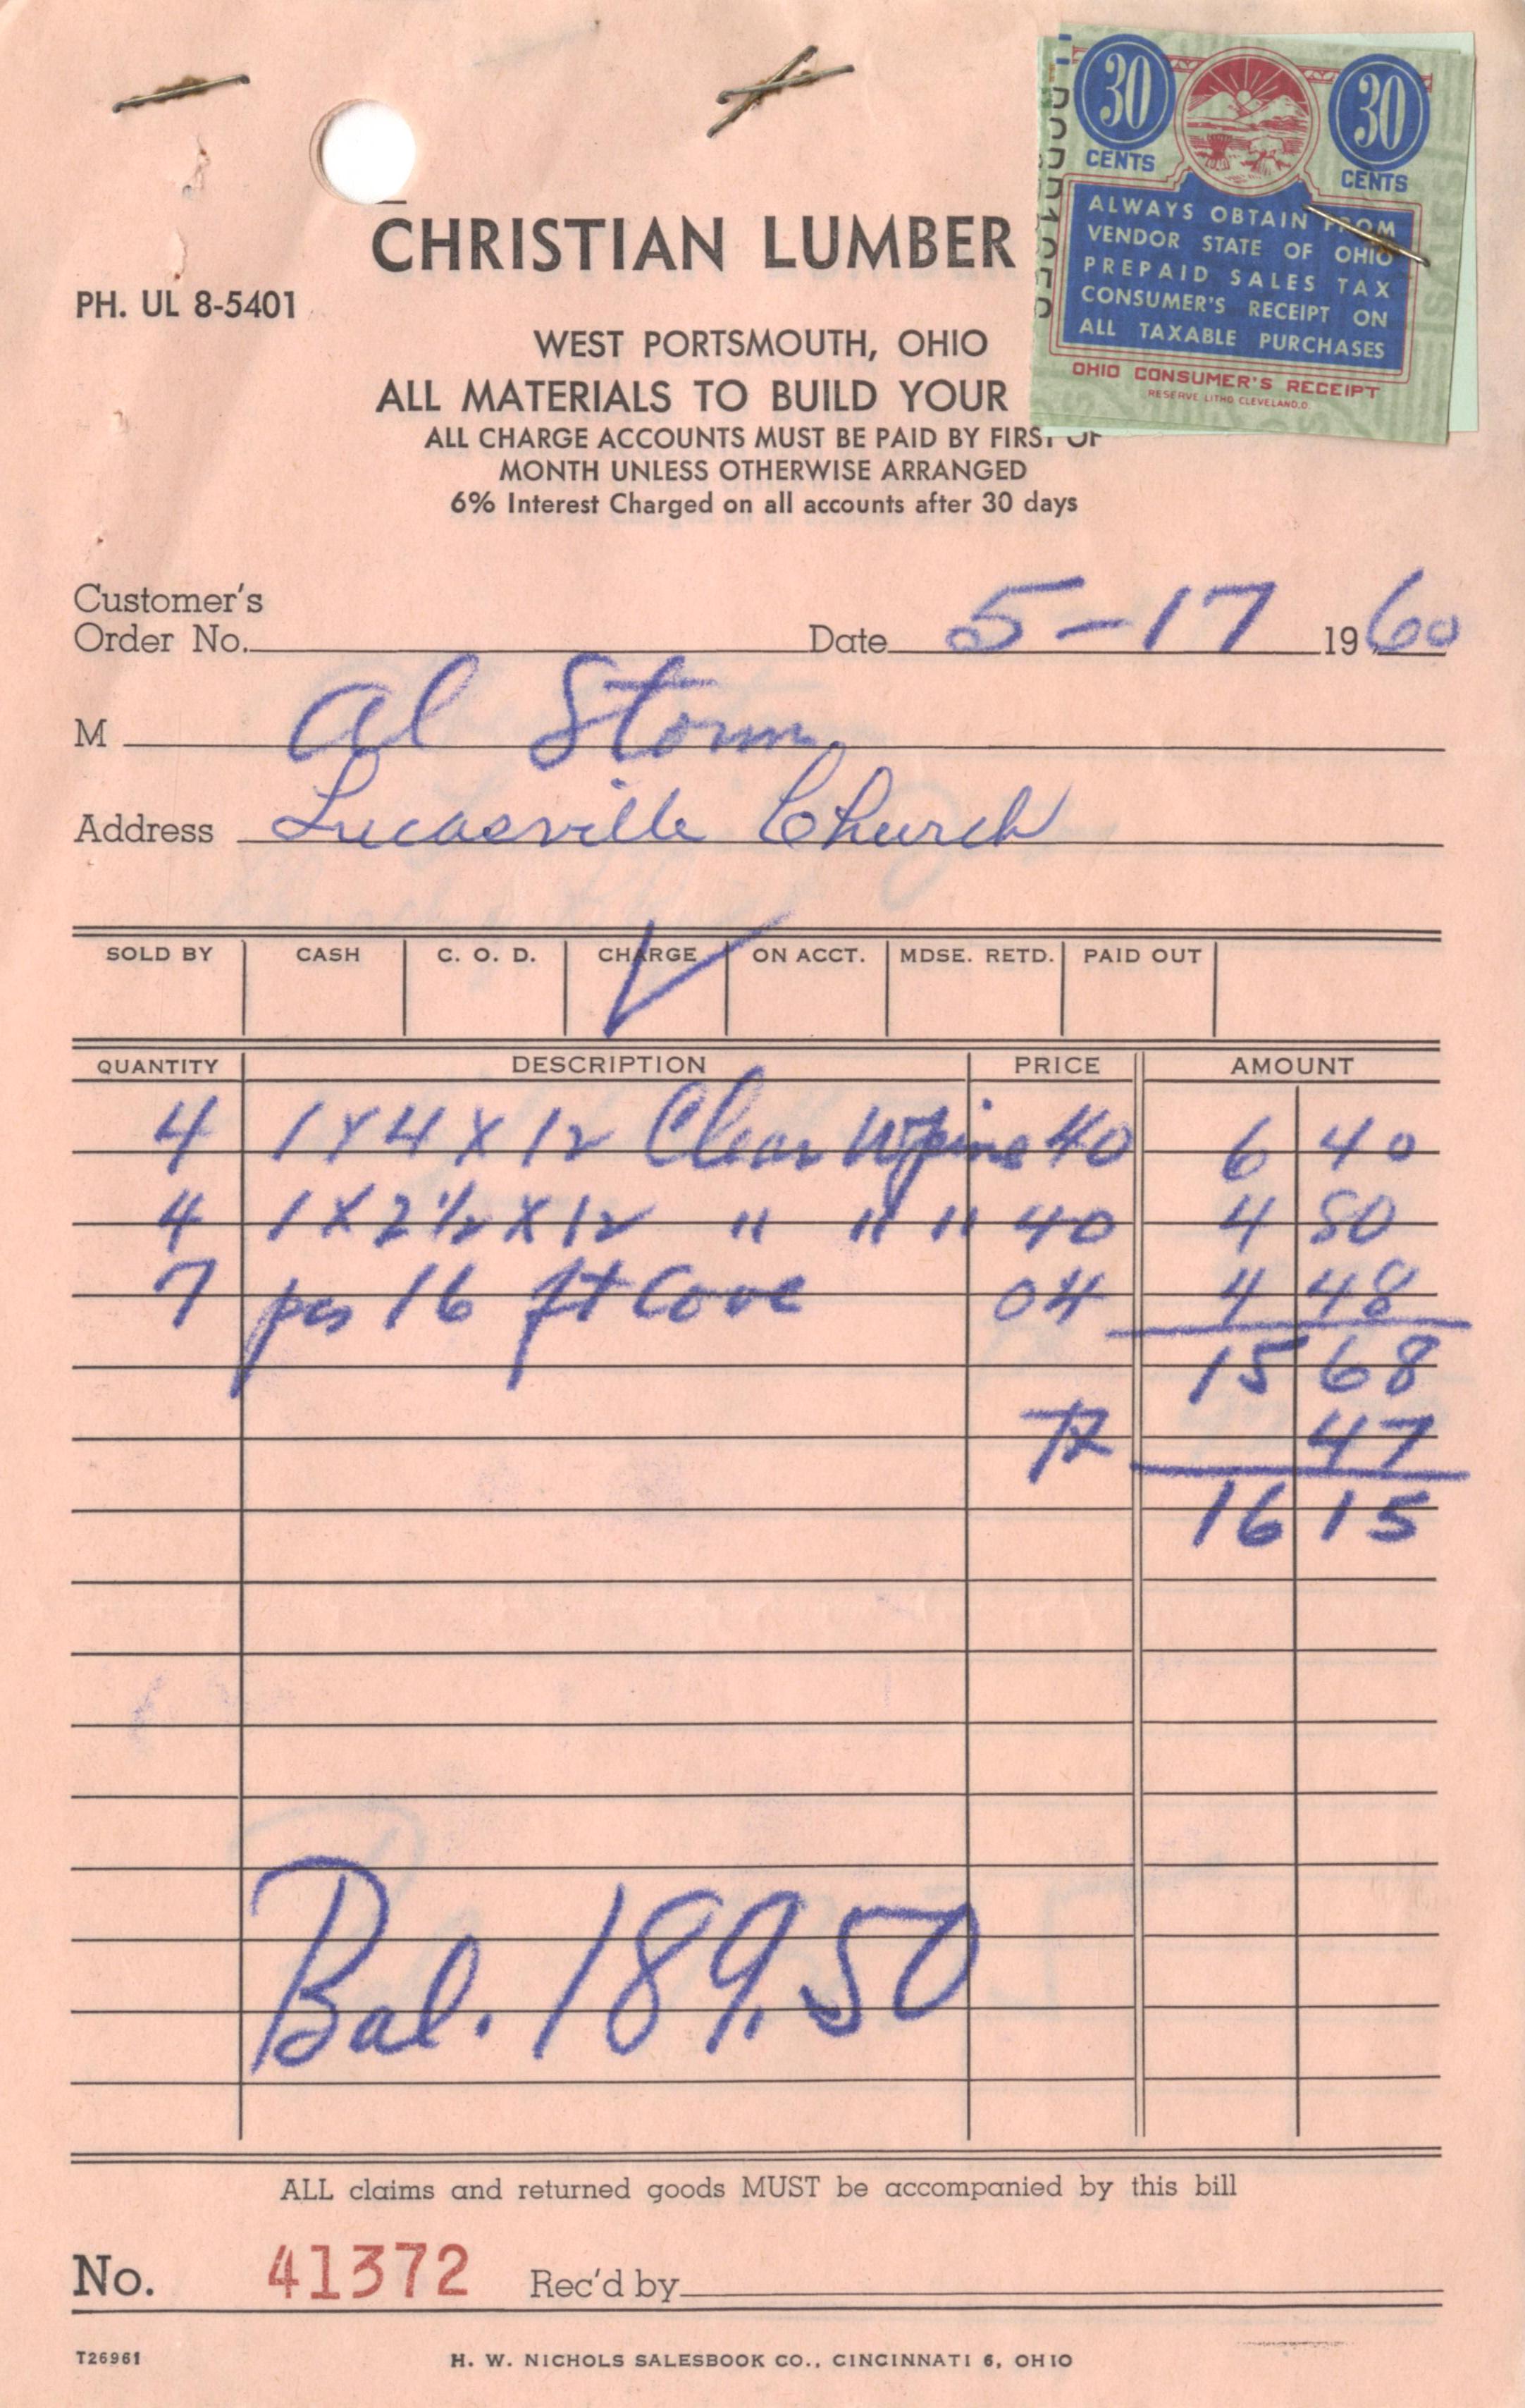 CHRISTIAN LUMBER
PH. UL 8-5401
WEST PORTSMOUTH, OHIO
ALL MATERIALS TO BUILD YOUR
ALL CHARGE ACCOUNTS MUST BE PAID BY FIRST OF
MONTH UNLESS OTHERWISE ARRANGED
6% Interest Charged on all accounts after 30 days
30 CENTS 30 CENTS
ALWAYS OBTAIN FROM
VENDOR STATE OF OHIO
PREPAID SALES TAX
CONSUMER'S RECEIPT ON
ALL TAXABLE PURCHASES
OHIO CONSUMER'S RECEIPT
RESERVE LITHO CLEVELAND,O.
Customer's
Order No. Date 5-17 1960
M Al Storm
Address Lucasville Church
SOLD BY CASH C. O. D. CHARGE ON ACCT. MDSE. RETD. PAID OUT
QUANTITY DESCRIPTION PRICE AMOUNT
4 1x4x12 Clear W pine 40 6 40
4 1x2½x12 " " " 40 4 80
7 pcs 16 ft Cove 04 4 48
15 68
TX 47
16 15
Bal. 189.50
ALL claims and returned goods MUST be accompanied by this bill
No. 41372 Rec'd by
T26961 H. W. NICHOLS SALESBOOK CO., CINCINNATI 6, OHIO